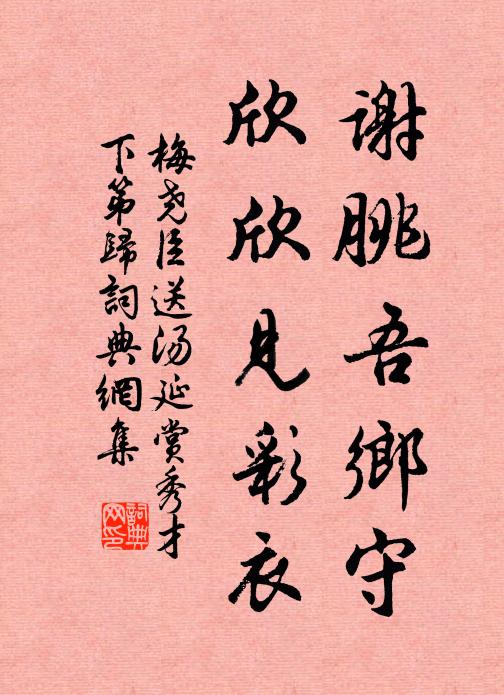 谢朓吾鄉守
欣欣見彩衣
梅尧臣送汤延赏秀才
下第歸詞典網集
詞典网印